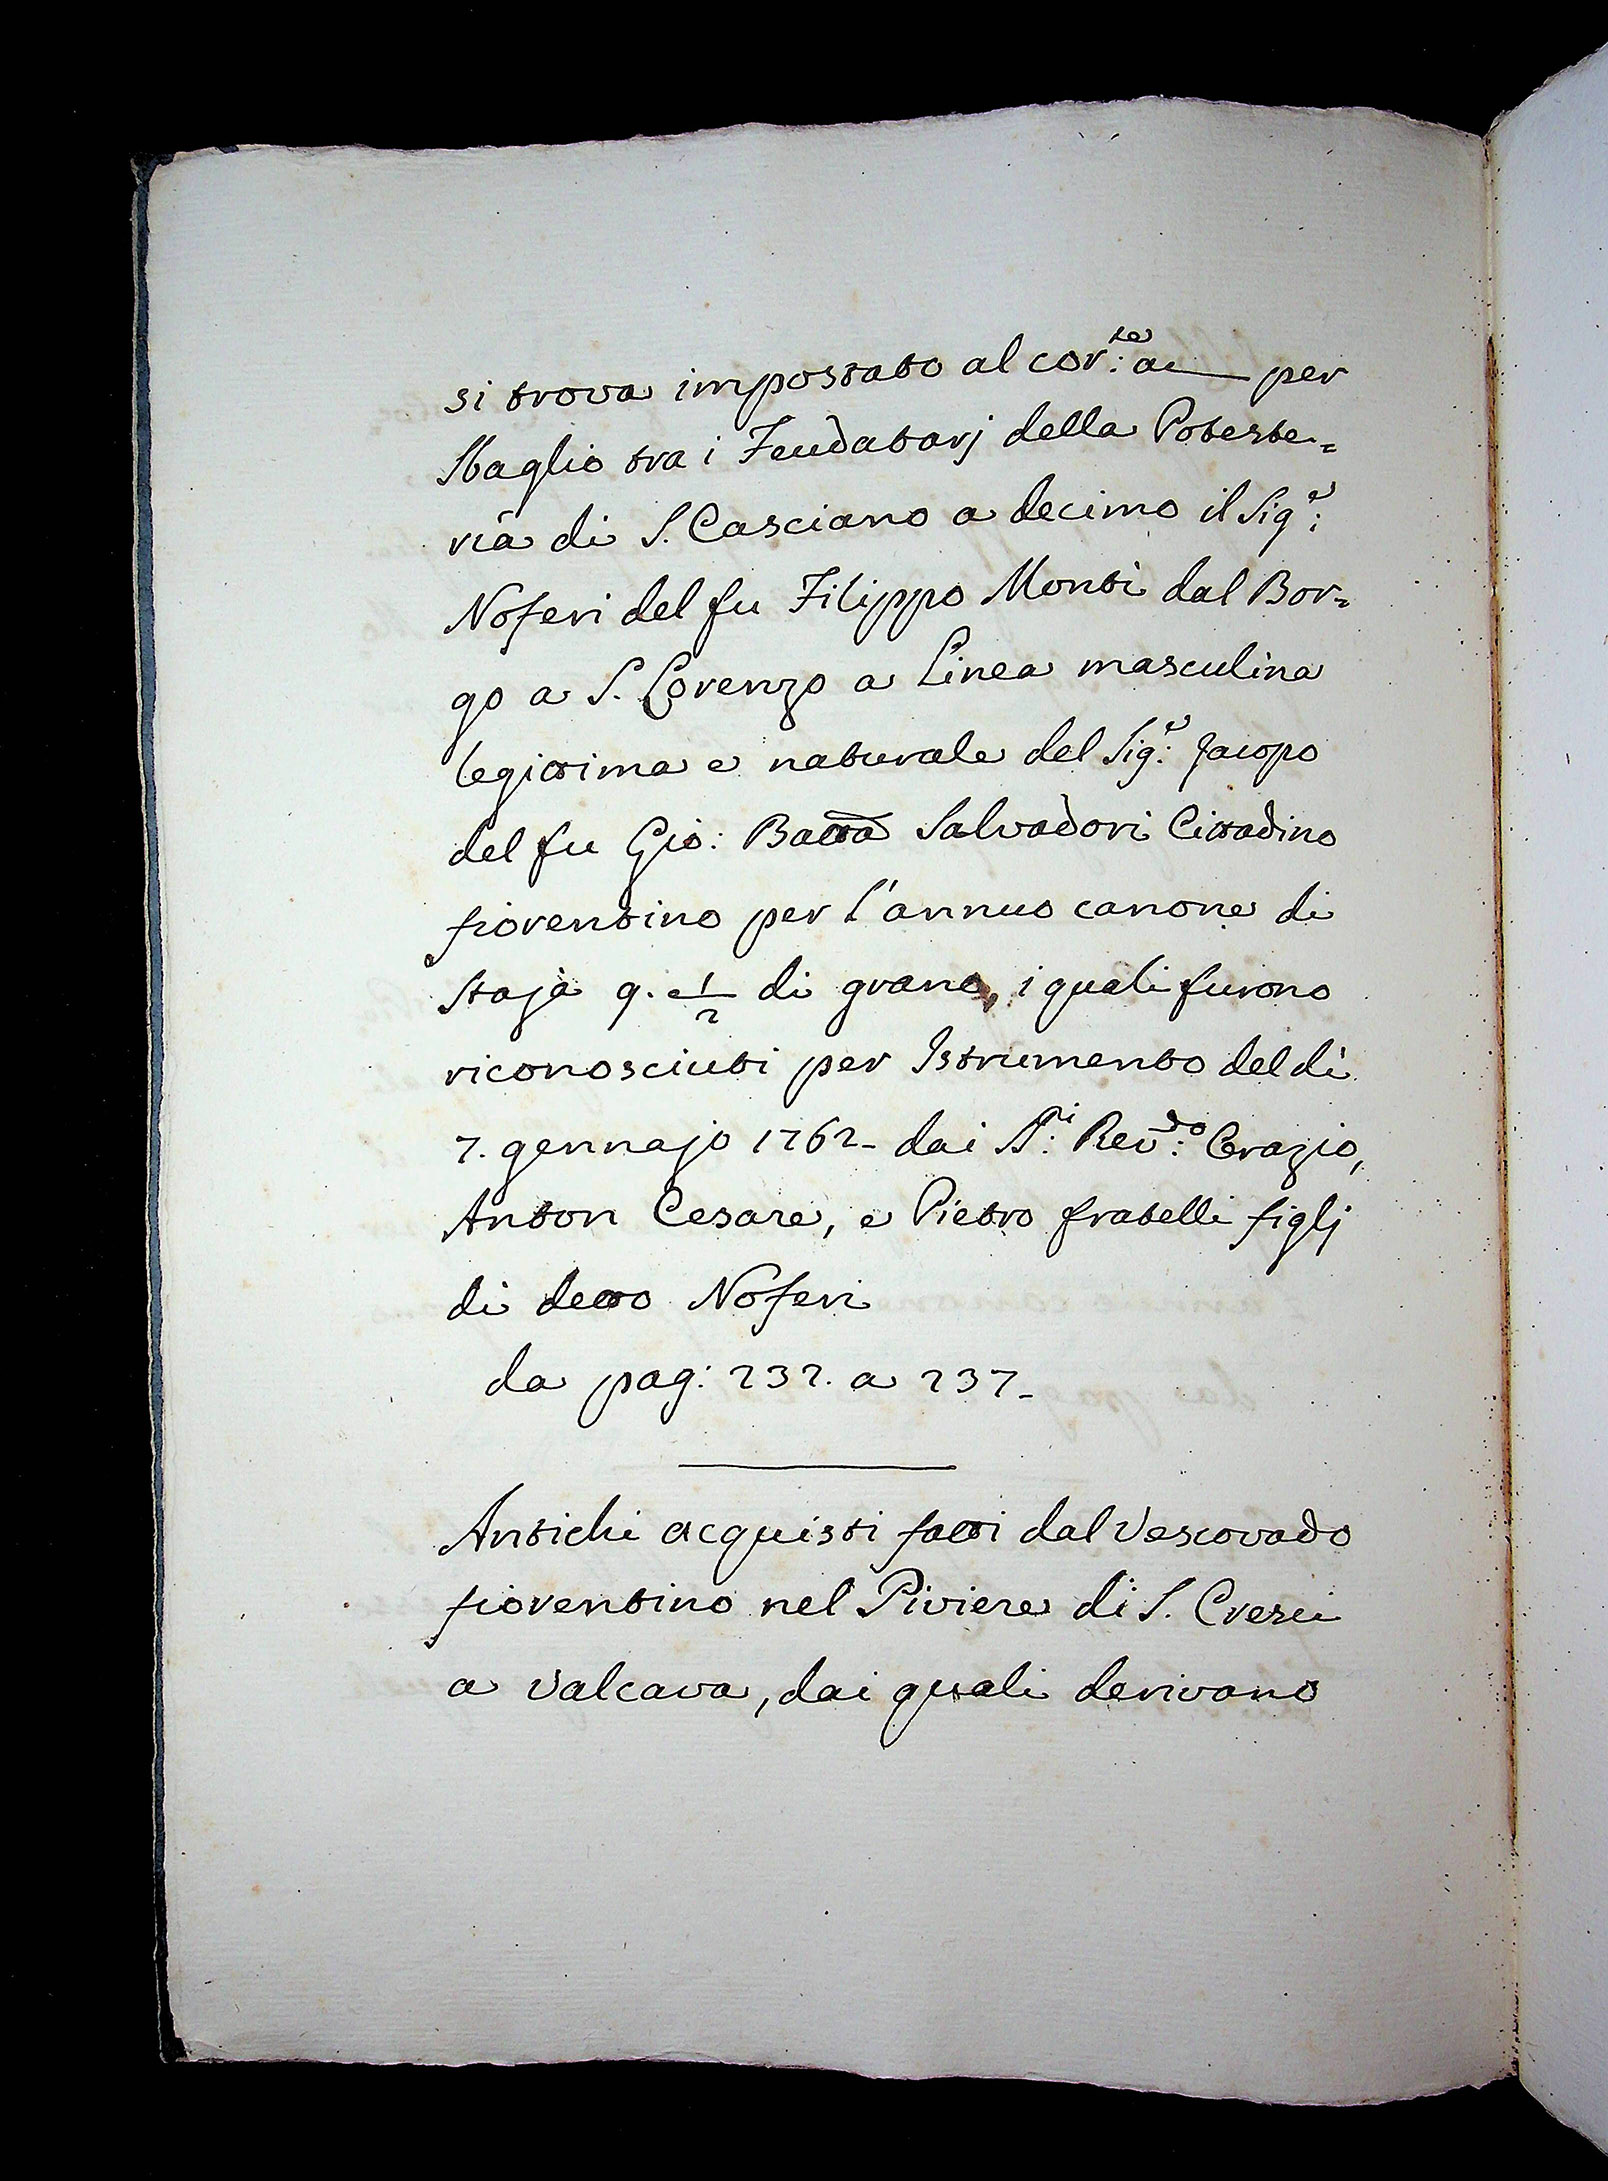 si trova impostato al cor:te a___ per
sbaglio tra i Feudatarj della Poteste=
ria di S. Casciano a decimo il Sig:r
Noferi del fu Filippo Monti dal Bor=
go a S. Lorenzo a Linea masculina
legittima e naturale del Sig:r Jacopo
del fu Gio: Batta Salvadori Cittadino
fiorentino per l'annuo canone di
Staja 9. e 1/2 di grano, i quali furono
riconosciuti per Istrumento del dì
7. gennajo 1762- dai SS:ri Rev:do Orazio,
Anton Cesare, e Pietro fratelli figlj
di detto Noferi
da pag: 232. a 237-
Antichi acquisti fatti dal Vescovado
fiorentino nel Piviere di S. Cresci
a Valcava, dai quali derivano